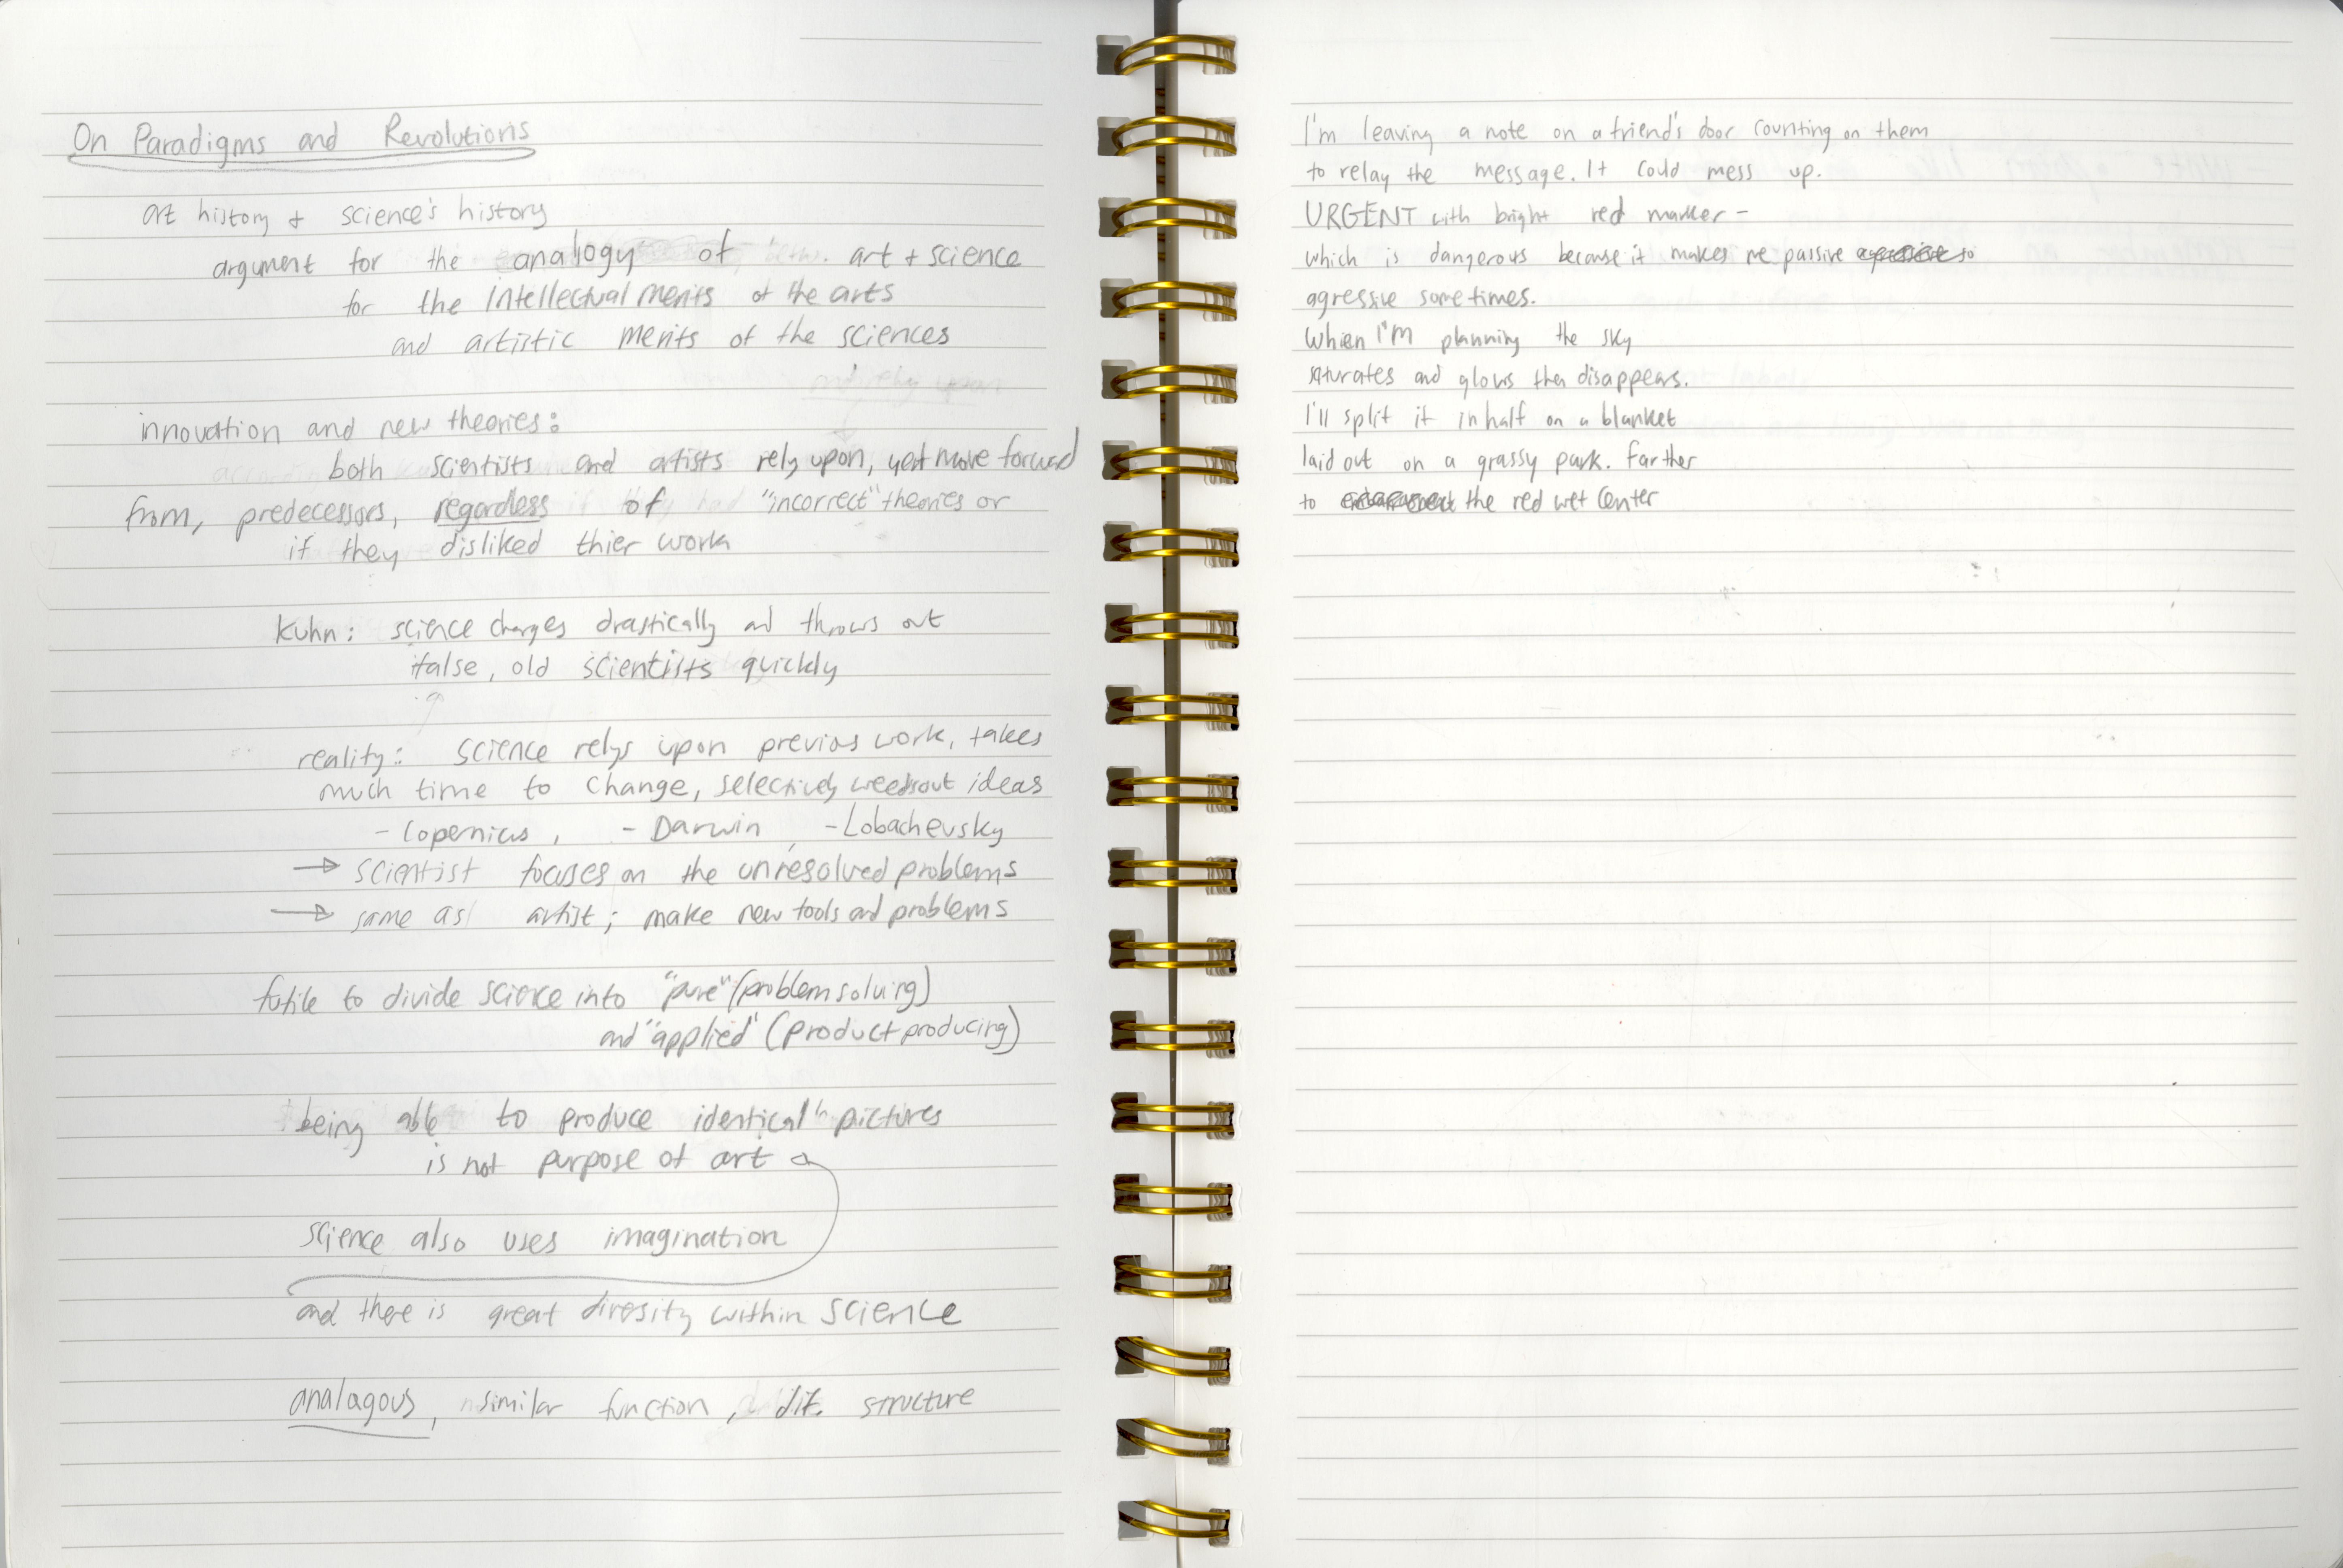 On Paradigms and Revolutions
art history + science's history
argument for the analogy of art + science
for the intellectual merits of the arts
and artistic merits of the sciences
innovation and new theories:
both scientists and artists rely upon, yet move forward
from, predecessors, regardless of "incorrect" theories or
if they disliked thier work
Kuhn: science changes drastically and throws out
false, old scientists quickly
reality: science relys upon previos work, takes
much time to change, selectively weeds out ideas
- Copernicus, - Darwin, - Lobachevsky
→ scientist focuses on the unresolved problems
→ same as artist; make new tools and problems
futile to divide science into "pure" (problem solving)
and "applied" (product producing)
being able to produce identical pictures
is not purpose of art
science also uses imagination
and there is great diresity within science
analagous, similar function, dif. structure
I'm leaving a note on a friend's door counting on them
to relay the message. It could mess up.
URGENT with bright red marker -
which is dangerous because it makes me passive so
agressive sometimes.
When I'm planning the sky
saturates and glows then disappears.
I'll split it in half on a blanket
laid out on a grassy park. Farther
to the red wet center